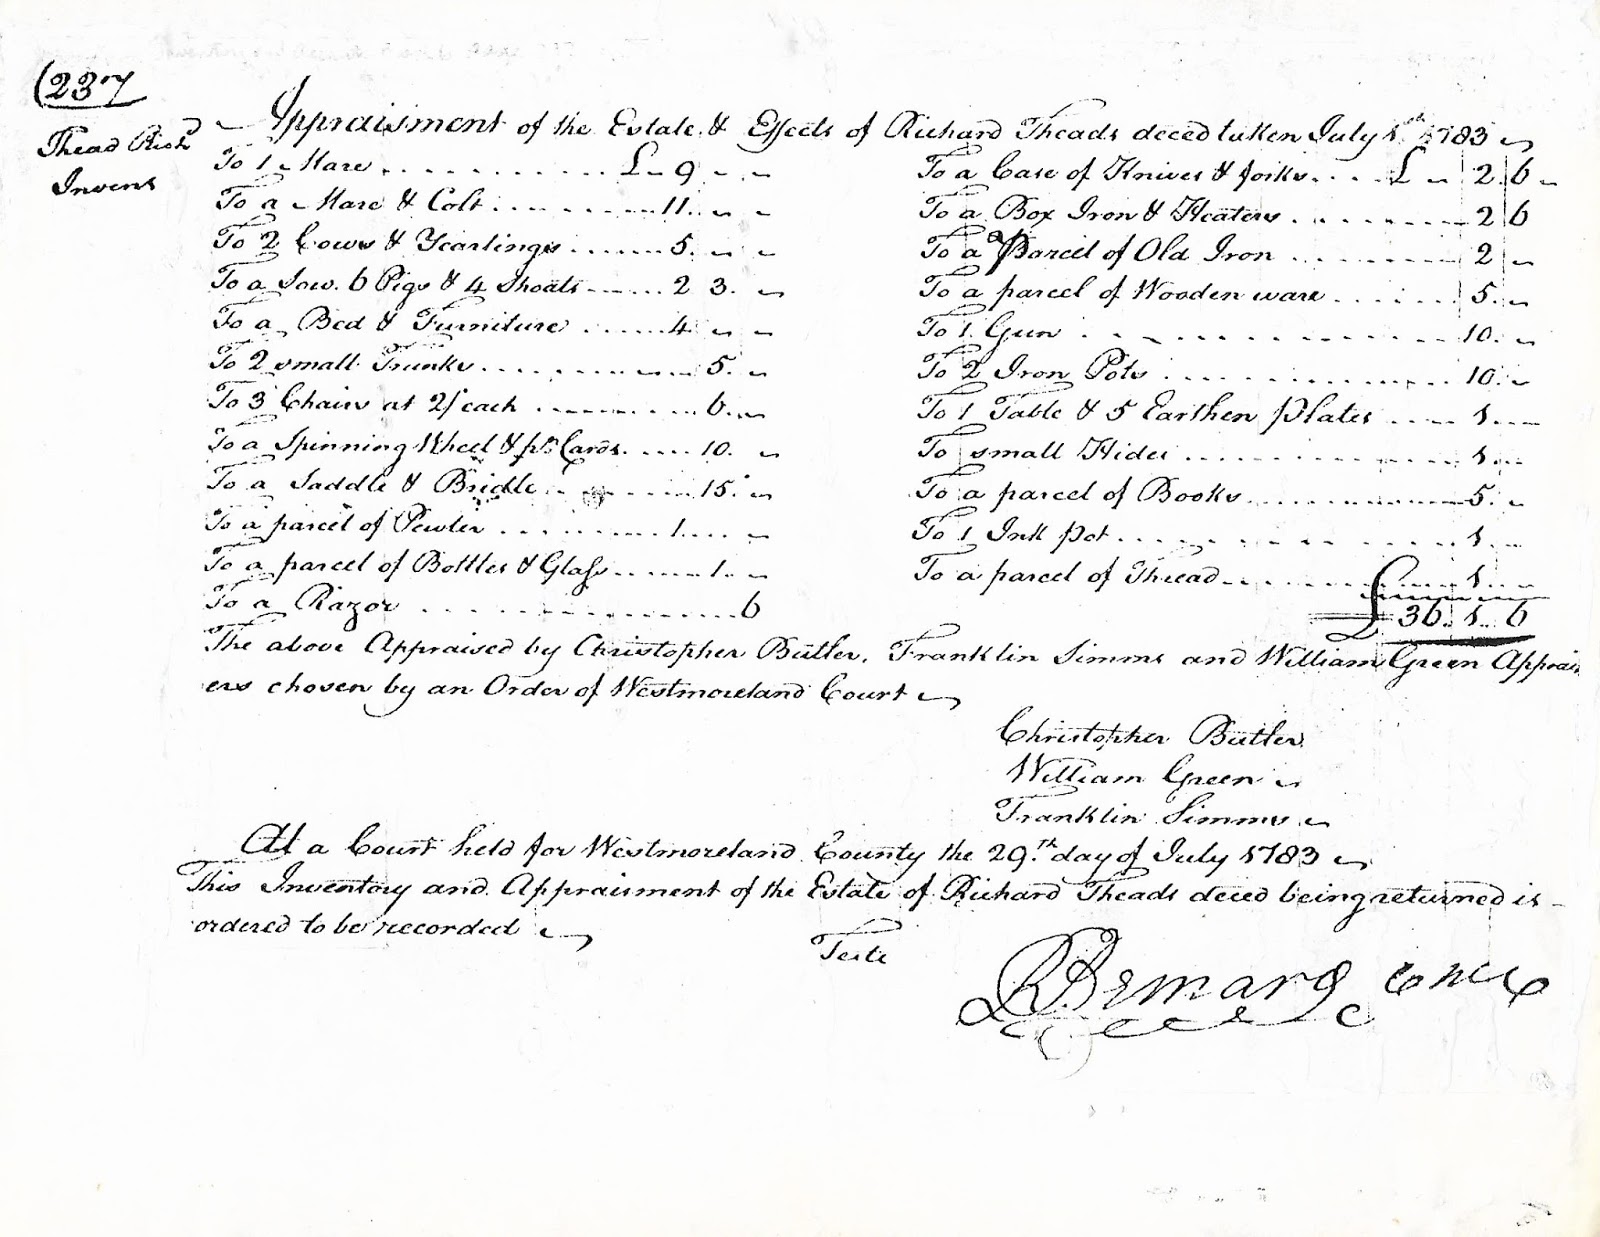 (237
Thead Rich^d
Invent
Appraisment of the Estate & Effects of Richard Theads deced taken July 1783
To 1 Mare . . . . . . . . . . . £ 9 . ~ ~
To a Mare & Colt . . . . . . . . . 11. ~ ~
To 2 Cows & Yearlings . . . . . . 5. ~ ~
To a Sow. 6 Pigs & 4 Shoats . . . . . 2 3. ~
To a Bed & Furniture . . . . . . 4 ~ ~
To 2 small Trunks . . . . . . . . . 5. ~
To 3 Chairs at 2/ each . . . . . . . 6. ~
To a Spinning Wheel & p^r Cards . . . . 10. ~
To a Saddle & Bridle . . . . . . . 15. ~
To a parcel of Pewter . . . . . . . 1 . . ~
To a parcel of Bottles & Glass . . . . . 1. ~
To a Razor . . . . . . . . . . . . . . 6
To a Case of Knives & forks . . . £ ~ 2. 6 ~
To a Box Iron & Heaters . . . . . . . 2 6
To a Parcel of Old Iron . . . . . . . 2 ~
To a parcel of Wooden ware . . . . . 5. ~
To 1 Gun . . . . . . . . . . . . . 10. ~
To 2 Iron Pots . . . . . . . . . . . 10. ~
To 1 Table & 5 Earthen plates . . . . 1 . ~
To small Hides . . . . . . . . . . . 1 . ~
To a parcel of Books . . . . . . . . 5. ~
To 1 Ink pot . . . . . . . . . . . . 1 . ~
To a parcel of Thread . . . . . . . . 1 . ~
£ 36. 1. 6
The above Appraised by Christopher Butler, Franklin Simms and William Green Apprais
ers chosen by an Order of Westmoreland Court ~
Christopher Butler
William Green ~
Franklin Simms ~
At a Court held for Westmoreland County the 29.th day of July 1783 ~
This Inventory and Appraisment of the Estate of Richard Theads deced being returned is
ordered to be recorded ~
Teste
R Bernard